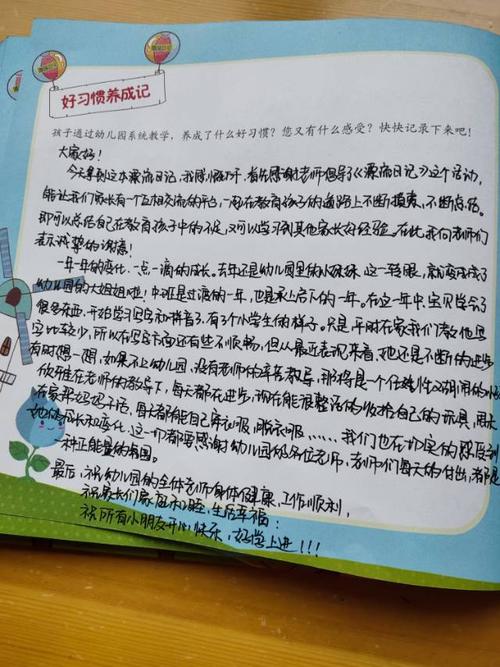 好习惯养成记
孩子通过幼儿园系统教学，养成了什么好习惯？您又有什么感受？快快记录下来吧！
大家好！
今天拿到这本漂流日记，我感慨万千，首先感谢老师倡导了《漂流日记》这个活动，
能让我们家长有一个互相交流的平台，一起在教育孩子的道路上不断摸索，不断总结。
即可以总结自己在教育孩子中的不足，又可以学习到其他家长好经验。在此我向老师们
表示诚挚的谢意！
一年一年的变化，一点一滴的成长。去年还是幼儿园里的小妹妹，这一转眼，就变成了
幼儿园的大姐姐啦！中班是过渡的一年，也是承上启下的一年。在这一年中宝贝学会了
很多东西，开始学习写字和拼音了，有了个小学生的样子。只是平时在家我们教他写
字比较少，所以在写字方面还有些不顺畅，但从最近表现来看，她还是不断的进步
有时想一想，如果不上幼儿园，没有老师的辛苦教导，那将是一个任性
欣开在老师的教导下，每天都在进步，现在能很整洁的收拾自己的玩具，用
在家帮妈妈干活，每天都能自己穿衣服，脱衣服……我们也在切实的感受到
她的成长和变化。这一切都要感谢幼儿园的各位老师，老师们每天的付出，都是
一种正能量的
最后，祝幼儿园的全体老师身体健康，工作顺利，
祝家长们家庭和睦，生活幸福；
祝所有小朋友开心快乐，好学上进！！！